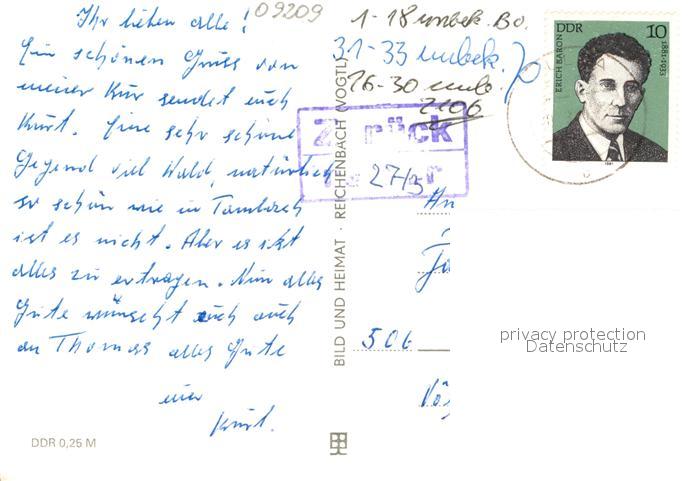 Ihr lieben alle!
Ein schönen Gruss von
meiner Kur sendet euch
Kurt. Eine sehr schöne
Gegend viel Wald, natürlich
so schön wie in Tambach
ist es nicht. Aber es ist
alles zu ertragen. Nun alles
Gute wünscht euch auch
an Thomas alles Gute
euer
Kurt.
DDR 0,25 M
09209
1-18 unbek. Bo.
31-33 unbek.
26-30 unb.
Zurück
27/3
BILD UND HEIMAT · REICHENBACH (VOGTL)
DDR 10
ERICH BARON
1881-1933
1981
An
506
privacy protection
Datenschutz